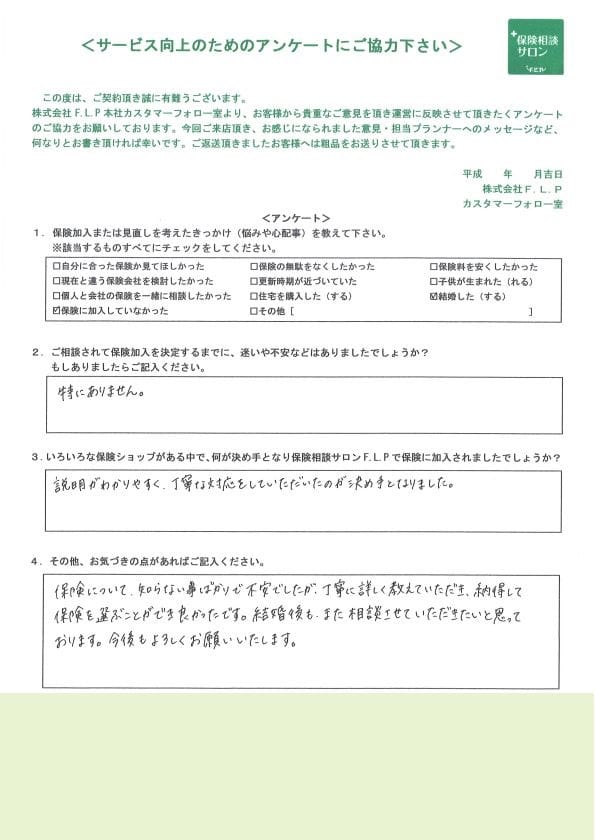 ＜サービス向上のためのアンケートにご協力下さい＞
保険相談
サロン
F.L.P
この度は、ご契約頂き誠に有難うございます。
株式会社F.L.P本社カスタマーフォロー室より、お客様から貴重なご意見を頂き運営に反映させて頂きたくアンケート
のご協力をお願いしております。今回ご来店頂き、お感じになられました意見・担当プランナーへのメッセージなど、
何なりとお書き頂ければ幸いです。ご返送頂きましたお客様へは粗品をお送りさせて頂きます。
平成　　年　　月吉日
株式会社F.L.P
カスタマーフォロー室
＜アンケート＞
1．保険加入または見直しを考えたきっかけ（悩みや心配事）を教えて下さい。
※該当するものすべてにチェックをしてください。
□自分に合った保険か見てほしかった　□保険の無駄をなくしたかった　□保険料を安くしたかった
□現在と違う保険会社を検討したかった　□更新時期が近づいていた　□子供が生まれた（れる）
□個人と会社の保険を一緒に相談したかった　□住宅を購入した（する）　☑結婚した（する）
☑保険に加入していなかった　□その他［　　　　］
2．ご相談されて保険加入を決定するまでに、迷いや不安などはありましたでしょうか？
もしありましたらご記入ください。
特にありません。
3．いろいろな保険ショップがある中で、何が決め手となり保険相談サロンF.L.Pで保険に加入されましたでしょうか？
説明がわかりやすく、丁寧な対応をしていただいたのが決め手となりました。
4．その他、お気づきの点があればご記入ください。
保険について、知らない事ばかりで不安でしたが、丁寧に詳しく教えていただき、納得して
保険を選ぶことができ良かったです。結婚後も、また相談させていただきたいと思って
おります。今後もよろしくお願いいたします。